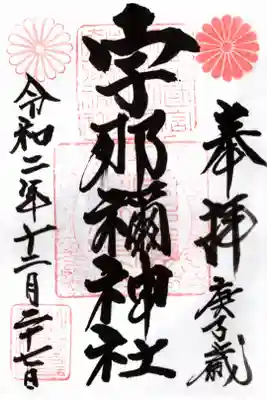 奉拝 庚子歳
宇那禰神社
令和二年十二月二十七日